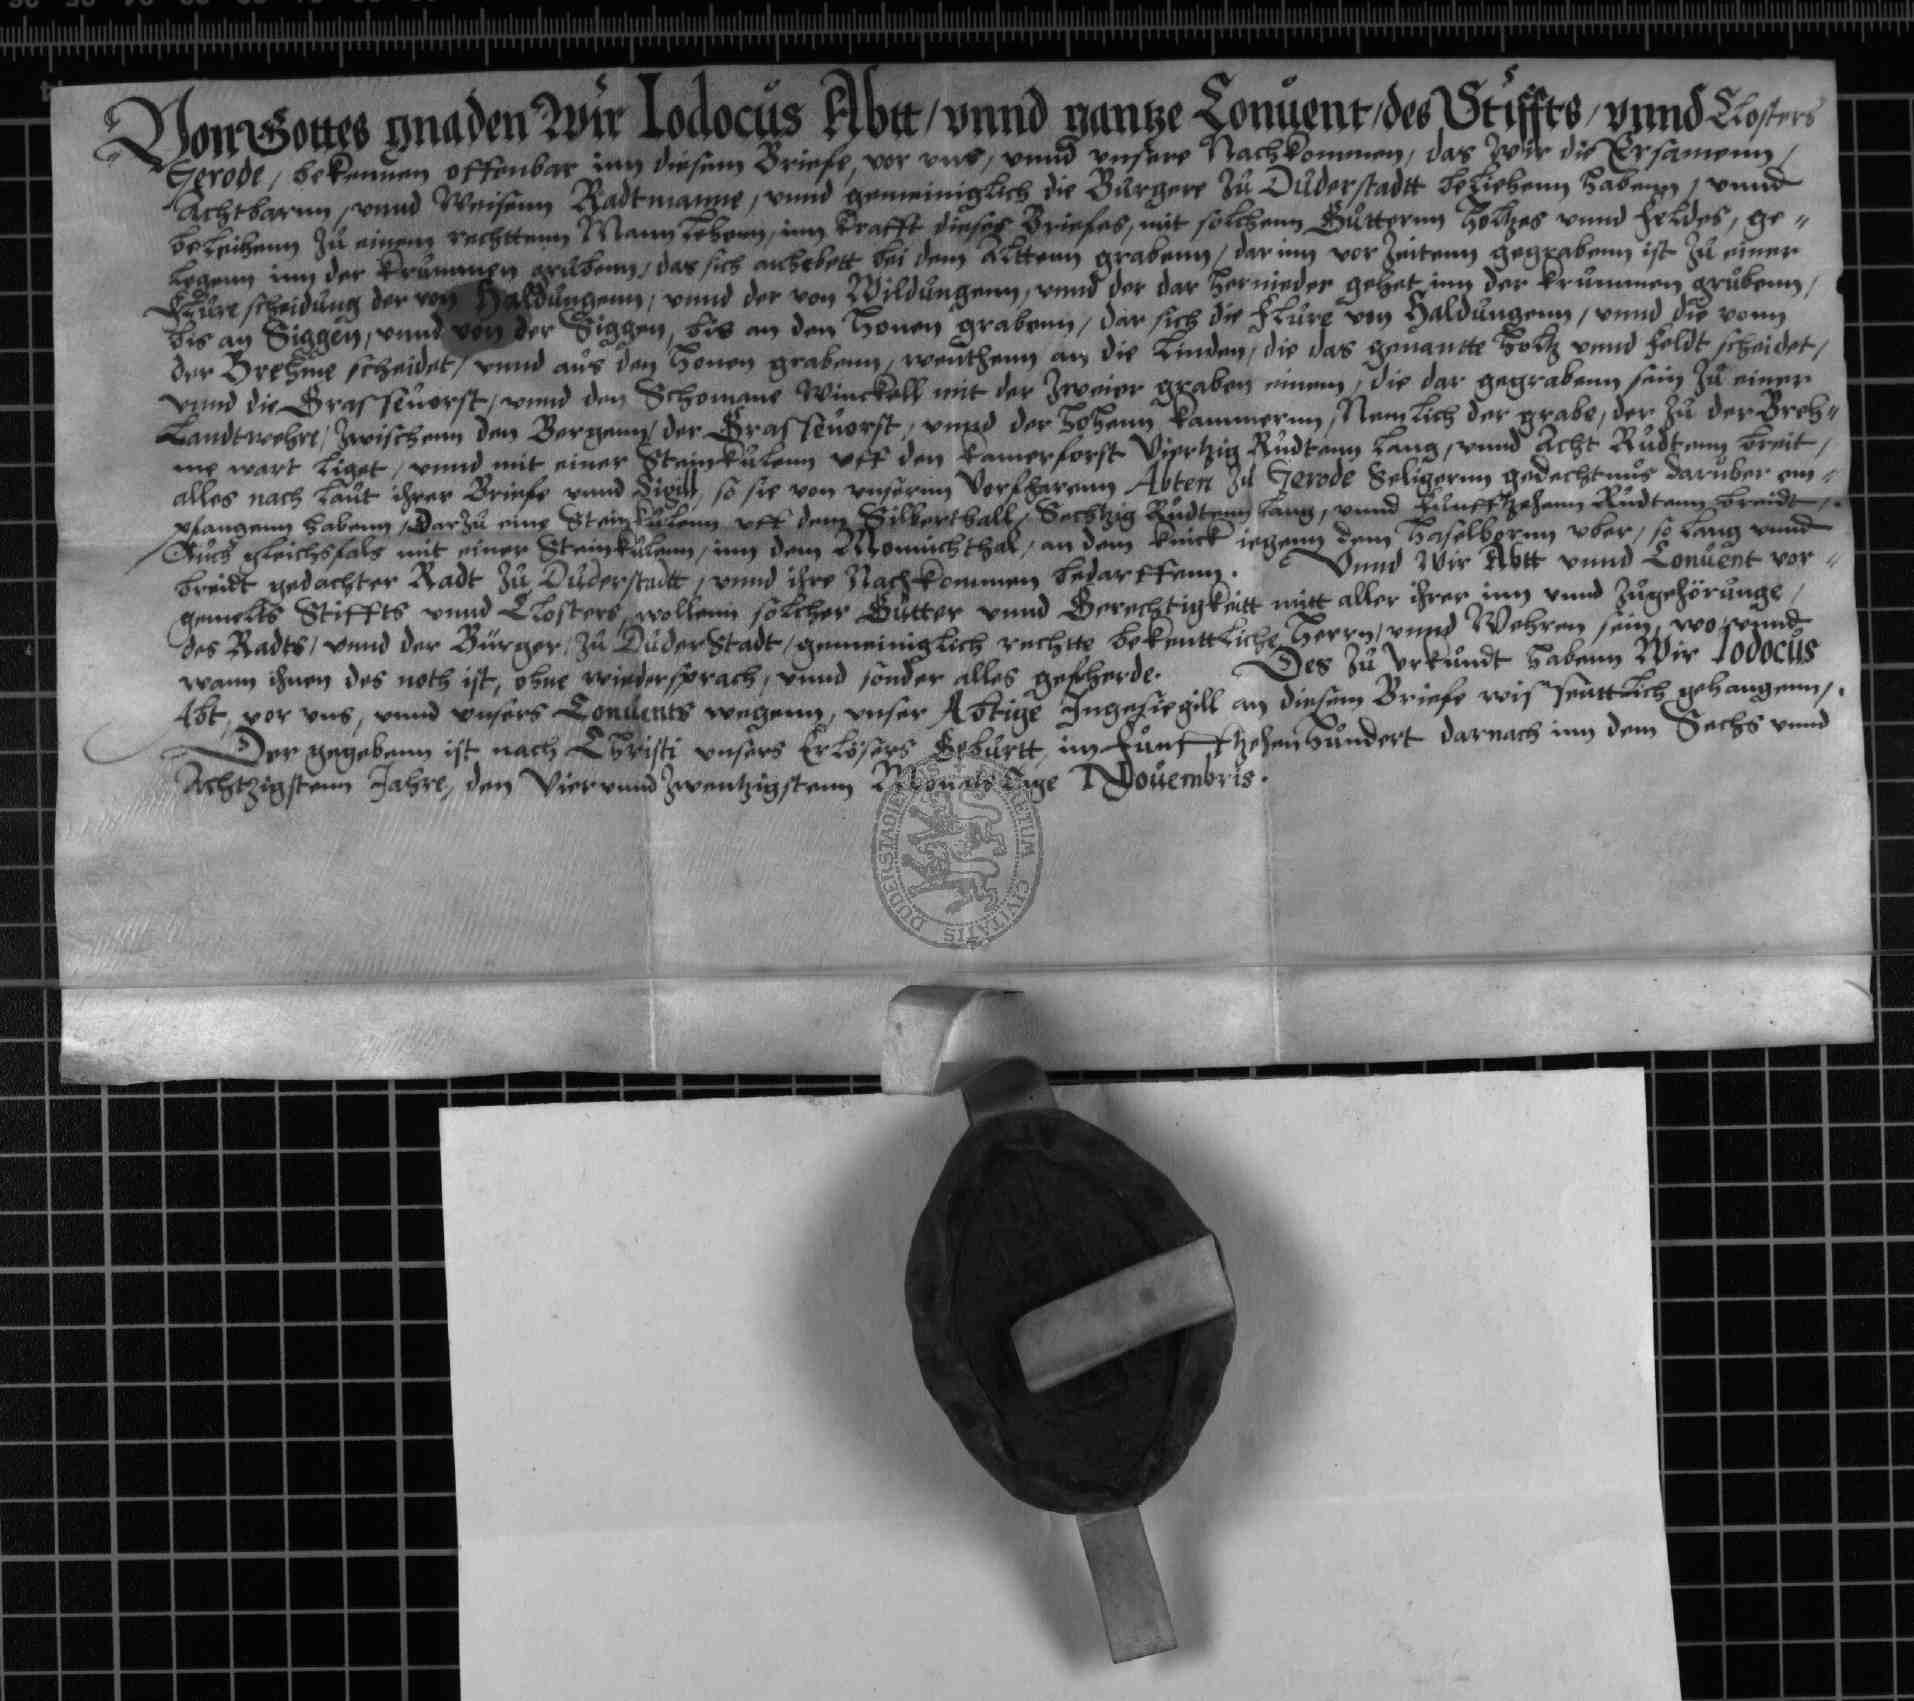 Von Gottes gnaden Wir Iodocus Abtt / vnnd gantze Conuent / des Stiffts / vnnd Closters
Gerode, bekennen offenbar inn diesem Briefe, vor vns, vnnd vnsere Nachkommen, das Wir die Ersamenn,
Achtbarnn, vnnd Weisenn Radtmanne, vnnd gemeiniglich die Burgere Zu Duderstadtt beliehenn habenn, vnnd
beleihenn Zu einem rechttenn Mann Lehenn, inn Krafft dieses Briefes, mit solchenn Gutternn Holtzes vnnd Feldes, ge-
legenn inn der Krummen grubenn, das sich anhebett bei dem Alttenn grabenn, dar inn vor Zeitenn gegrabenn ist Zu einer
Flure scheidung der von Haldungenn, vnnd der von Wildungenn, vnnd der dar hernieder gehet inn der Krummen grubenn,
bis an Siggen, vnnd von der Siggen, bis an den Honen grabenn, dar sich die Flure von Haldungenn, vnnd die vonn
der Brehme scheidet, vnnd aus den Honen grabenn, wenthenn an die Linden, die das genantte Holtz vnnd Feldt scheidet,
vnnd die Grassenorst, vnnd den Schomans Winckell mit der Zweier graben einem, die dar gegrabenn sein Zu einer
Landtwehre, Zwischenn den Bergenn, der Grassenorst, vnnd der Hohenn Kammernn, Nemlich der grabe, der Zu der Breh-
me wart liget, vnnd mit einer Steinkulenn vff den Kamerforst Viertzig Rudtenn lang, vnnd Acht Rudtenn breit,
alles nach laut ihrer Briefe vnnd Sigill, so sie von vnsernn Vorfharenn Abten Zu Gerode Seligernn gedechtnus daruber em-
pfangenn habenn, Darzu eine Steinkulenn vff dem Silberthall, Sechtzig Rudtenn lang, vnnd Funfftzehenn Rudtenn breidt,
Auch gleichsfals mit einer Steinkulenn, inn dem Monnichthal, an dem Knick iegenn dem Haselbornn vber, so lang vnnd
breidt gedachter Radt Zu Duderstadtt, vnnd ihre Nachkommen bedarffenn. Vnnd Wir Abtt vnnd Conuent vor-
gemelts Stiffts vnnd Closters wollenn solcher Gutter vnnd Gerechtigkeitt mitt aller ihrer inn vnnd Zugehörunge,
des Radts, vnnd der Bürger, Zu DuderStadt, gemeiniglich rechtte bekenttliche Herrn, vnnd Wehren sein, wo vnnd
wann ihnen des noth ist, ohne wiedersprach, vnnd sonder alles gefherde. Des Zu Vrkundt habenn Wir Iodocus
Abt, vor vns, vnnd vnsers Conuents wegenn, vnser Abtige Ingesiegill an diesem Briefe wissenttlich gehangenn,
Der gegebenn ist nach Christi vnsers Erlösers Geburtt, im Funfftzehenhundert darnach inn dem Sechs vnnd
Achtzigstenn Jahre, den Viervnndzwentzigstenn Monats tage Nouembris.
DUDERSTADIENSIS CIVITATIS